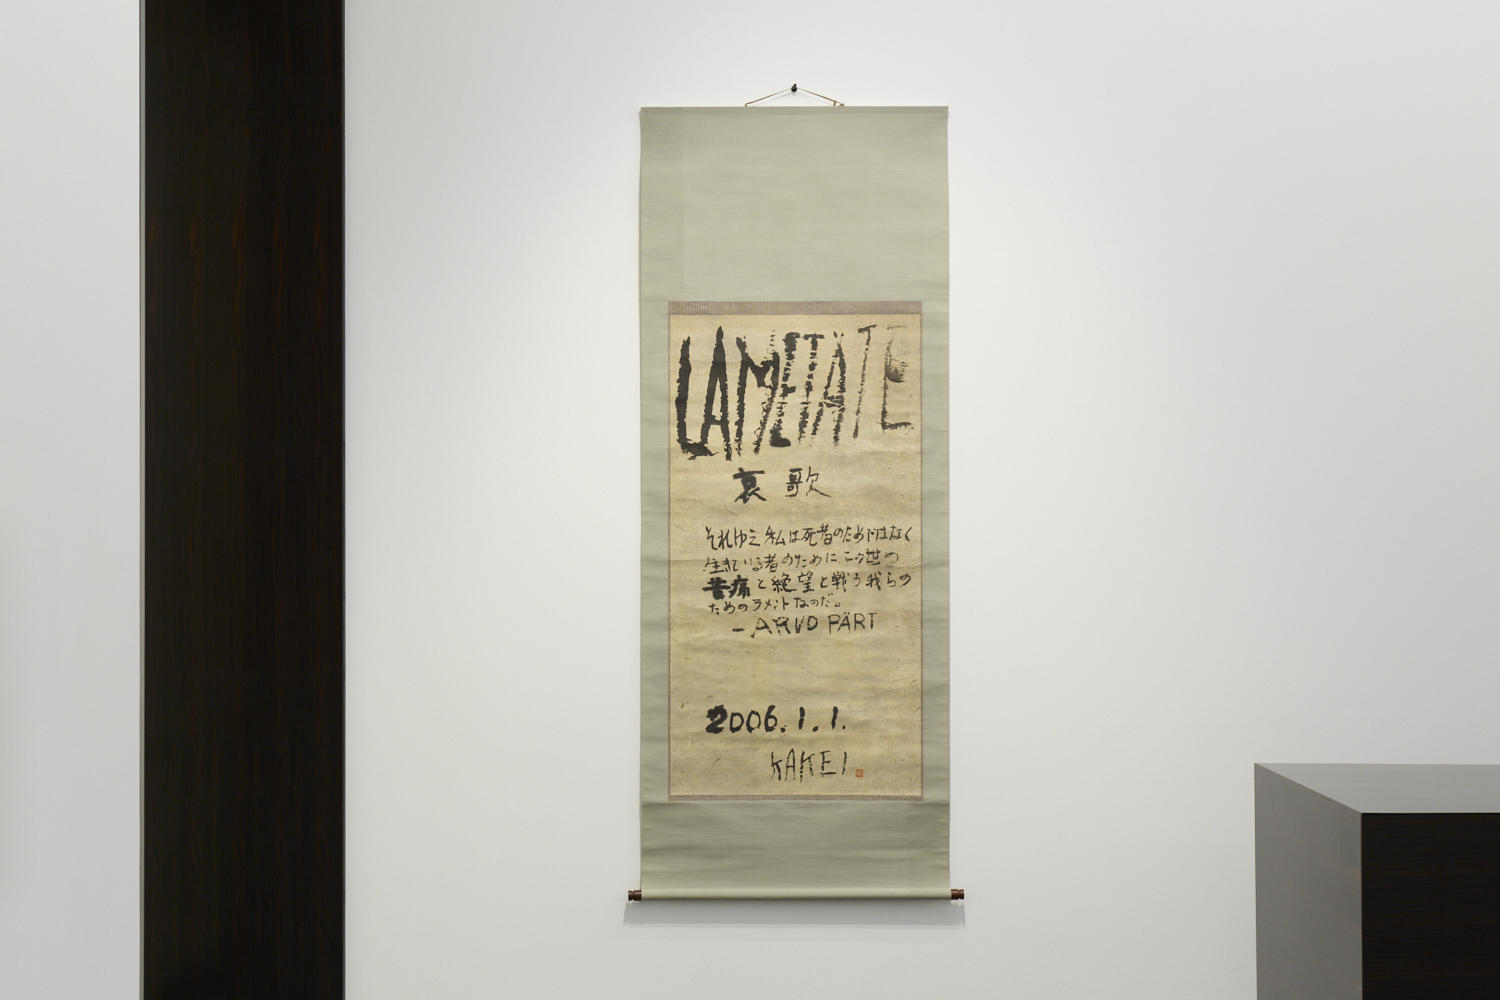 LAMETÄTE
哀歌
それゆえ私は死者のためではなく
生きている者のためにこの世の
苦痛と絶望と戦う我らの
ためのラメントなのだ。
-ARVO PÄRT
2006.1.1.
KAKEI